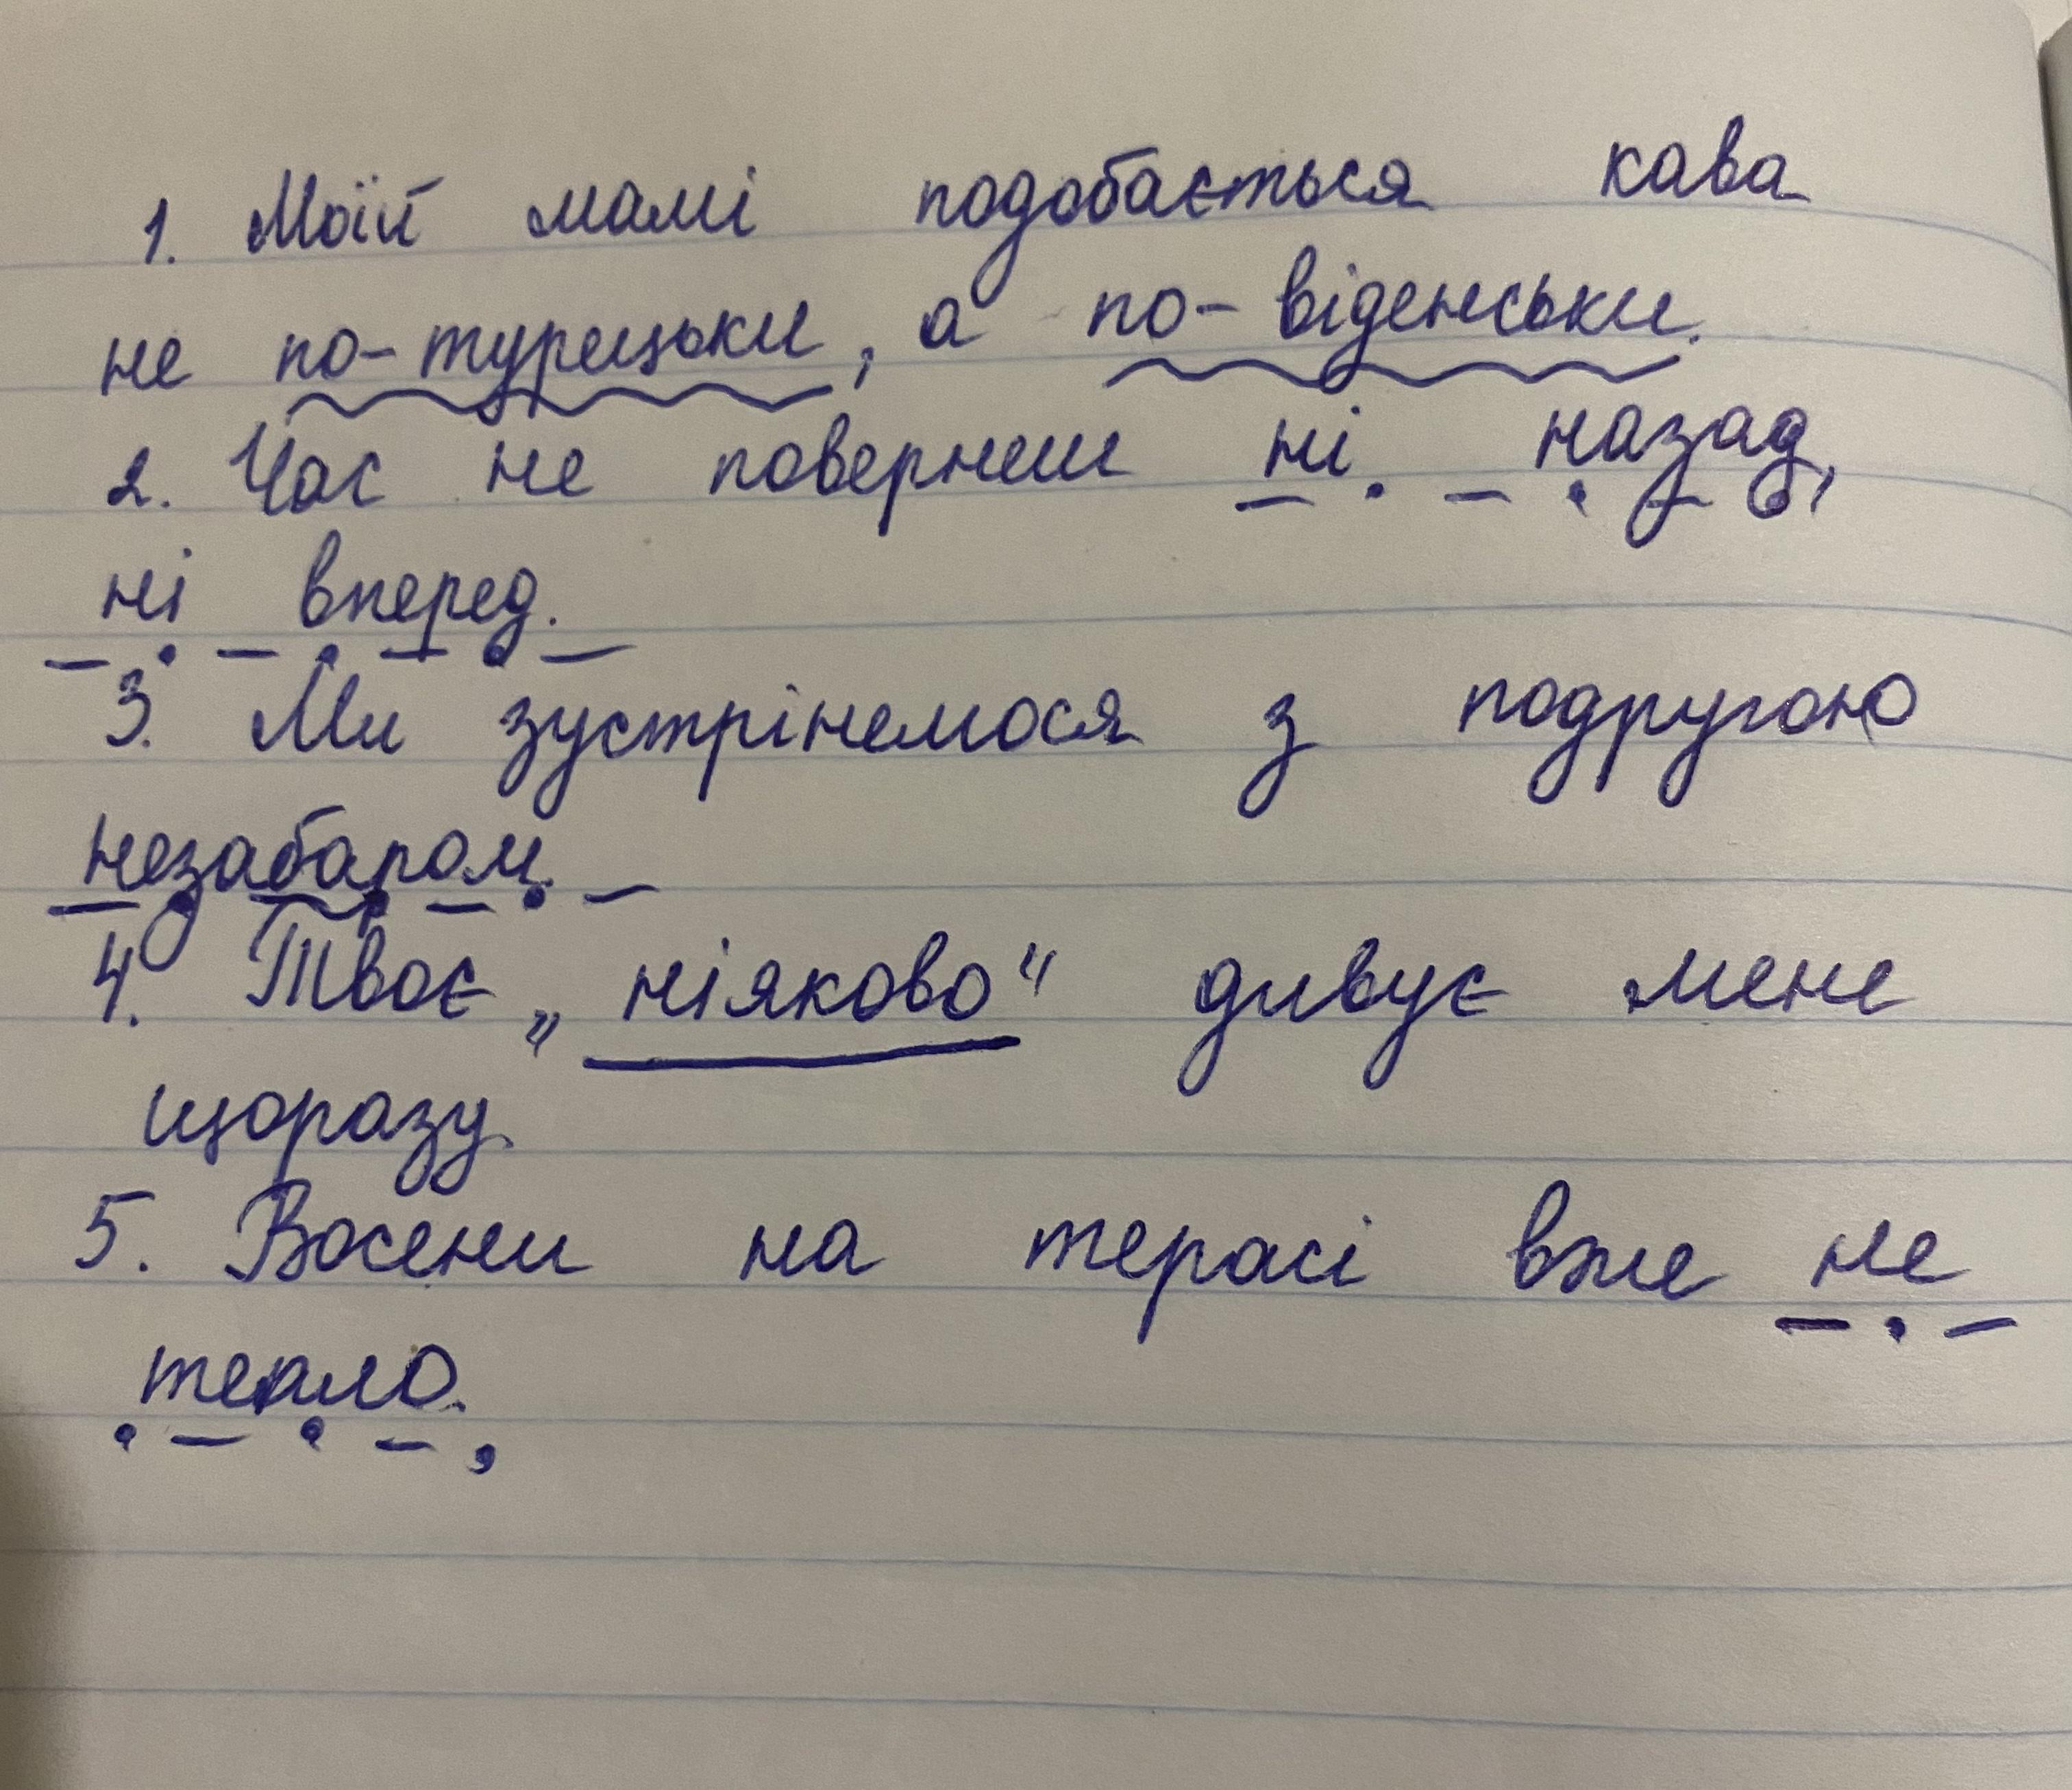 1. Моїй мамі подобається кава
не по-турецьки, а по-віденськи.
2. Час не повернеш ні назад,
ні вперед.
3. Ми зустрінемося з подругою
незабаром.
4. Твоє „ніяково“ дивує мене
щоразу.
5. Восени на терасі вже не
тепло.